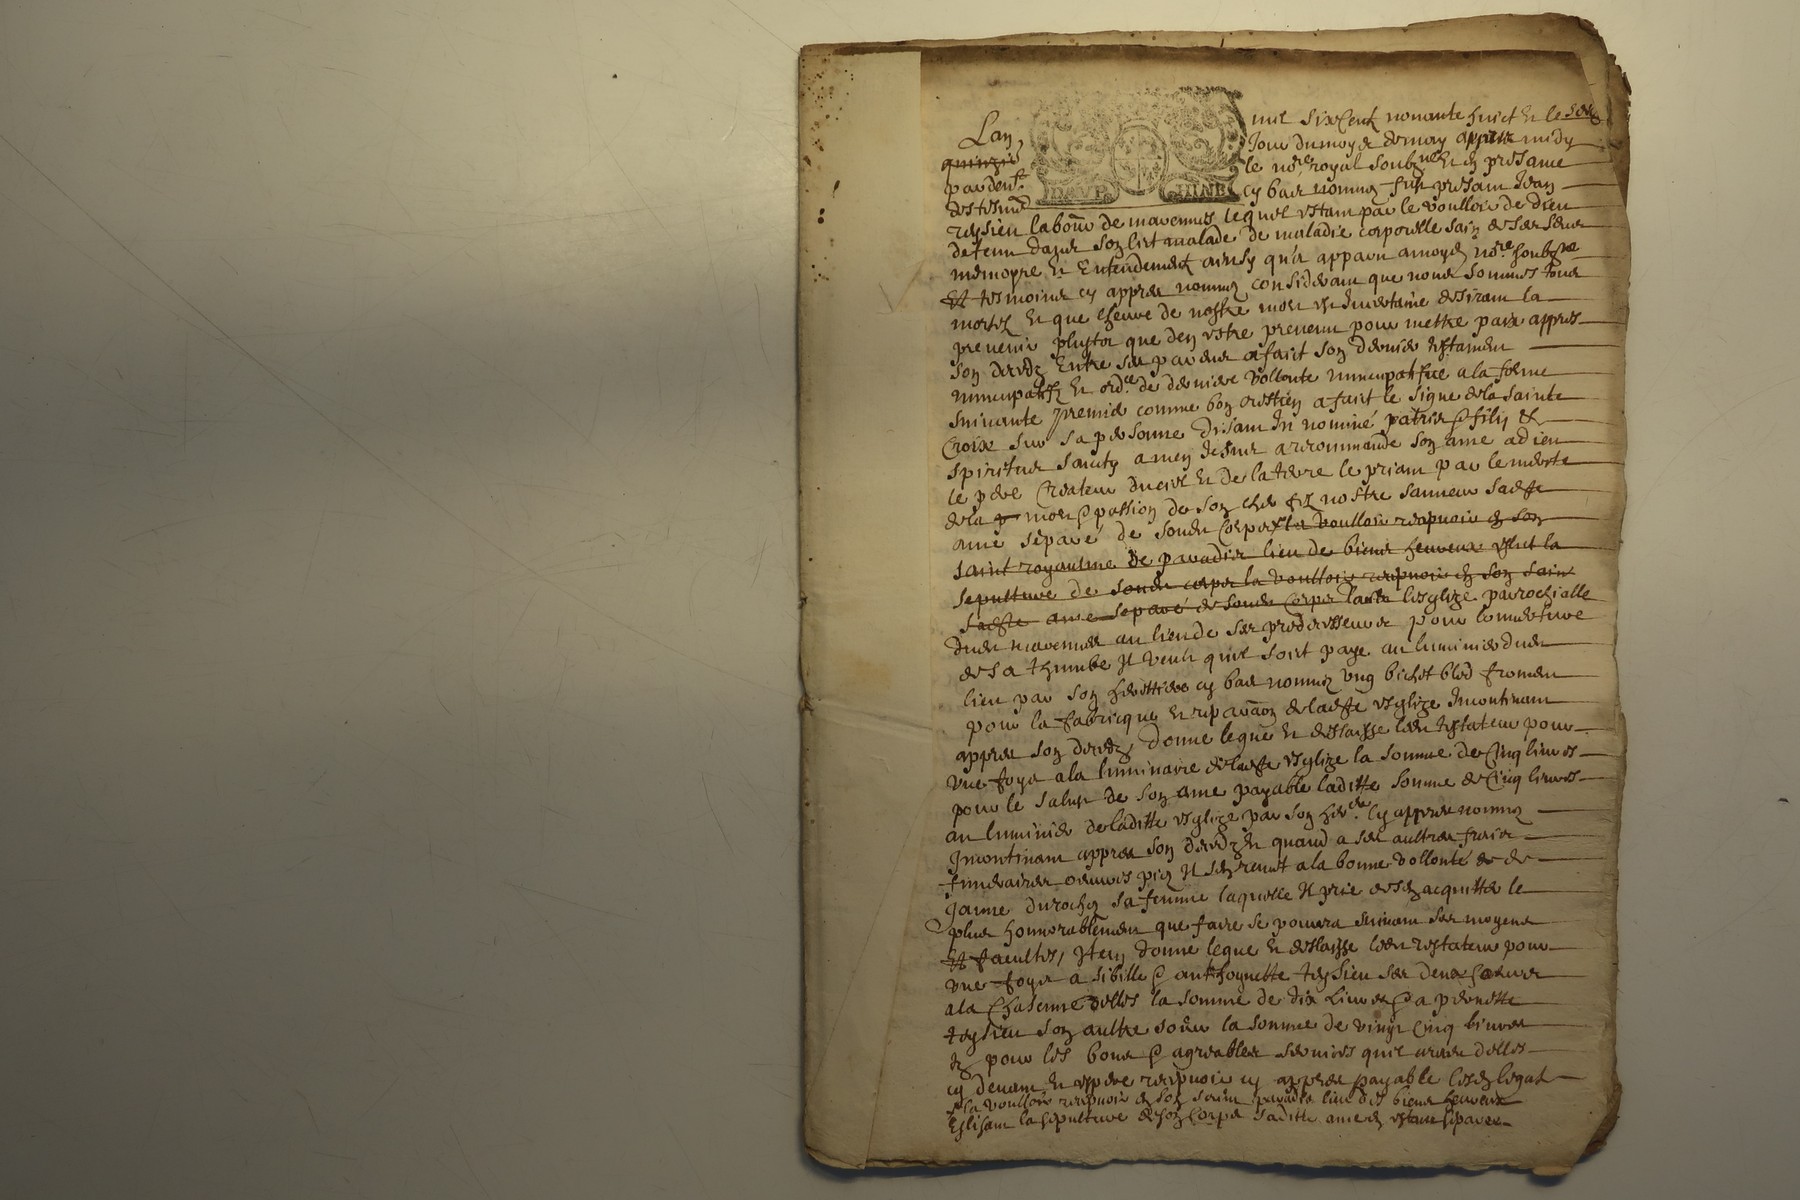 Lan mil six Cent nonante huict et le
quinzie Jour du moys de may appres midy
pardent le nore royal soubzne et en presance
des tesmo cy bas nommes fust presant Jean
teyssieu labour de marennes lequel estant par le voulloir de dieu
detenu dans son lict malade de maladie corporelle sain de ses sens
memoyre et Entendement ainsy qu'a apparu a moyd nore soubzne
Et tesmoins cy appres nommes considerant que nous sommes tous
mortelz et que lheure de nostre mort est Incertaine desirant la
prevenir plustot que den estre prevenu pour mettre paix appres
son deces Entre ses parens a faict son dernier testament
nuncupatif et ordce de derniere vollonte nuncupatifve a la forme
suivante premier comme bon crestien a faict le signe de la sainte
Croix sur sa personne disant In nominé patris & filij &
spiritus sancty amen Jesus a recommandé son ame a dieu
le pere Createur du ciel et de la terre le priant par le merite
de la mort & passion de son cher filz nostre sauveur sadte
ame séparé de sondt Corps la voulloir recepvoir en son
saint royaulme de paradis lieu des biens heureux eslit la
sepulture de sondt corps la voulloir recepvoir en son saint
sadte ame separé de sondt Corps lesglize parrochialle
dudt marennes au lieu de ses predecesseurs pour louverture
de sa thumbe Il veult quil soit payé au luminier dudt
lieu par son heritiere cy bas nommée ung bichet bled froment
pour la fabricque et reparaon de ladte esglize Incontinant
appres son deces, donne legue et deslaisse ledt testateur pour
une foys a la luminaire de ladte esglize la somme de Cinq livres
pour le salut de son ame payable laditte somme de Cinq livres
au luminier de laditte esglize par son here cy appres nommée
Incontinant appres son deces Et quand a ses aultres frais
funeraires oeuvres pies Il sen remet a la bonne vollonté de
Janne durochet sa femme laquelle Il prie de sen acquitter le
plus honnorablement que faire se pourra suivant ses moyens
Et facultes, Item donne legue et deslaisse ledt testateur pour
une foys a sibille & anthoynette teyssieu ses deux soeurs
a la Chascune delles la somme de dix livres & a pernette
teyssieu son aultre soeur la somme de vingt Cinq livres
pour les bons & agreables services quil a receu delles
cy devant et espere recepvoir cy appres payable lesd legat
la voulloir recepvoir en son saint paradis lieu des biens heureux
Eslisant la sepulture de son Corps sadite ame en estant separee
DAVP HINE